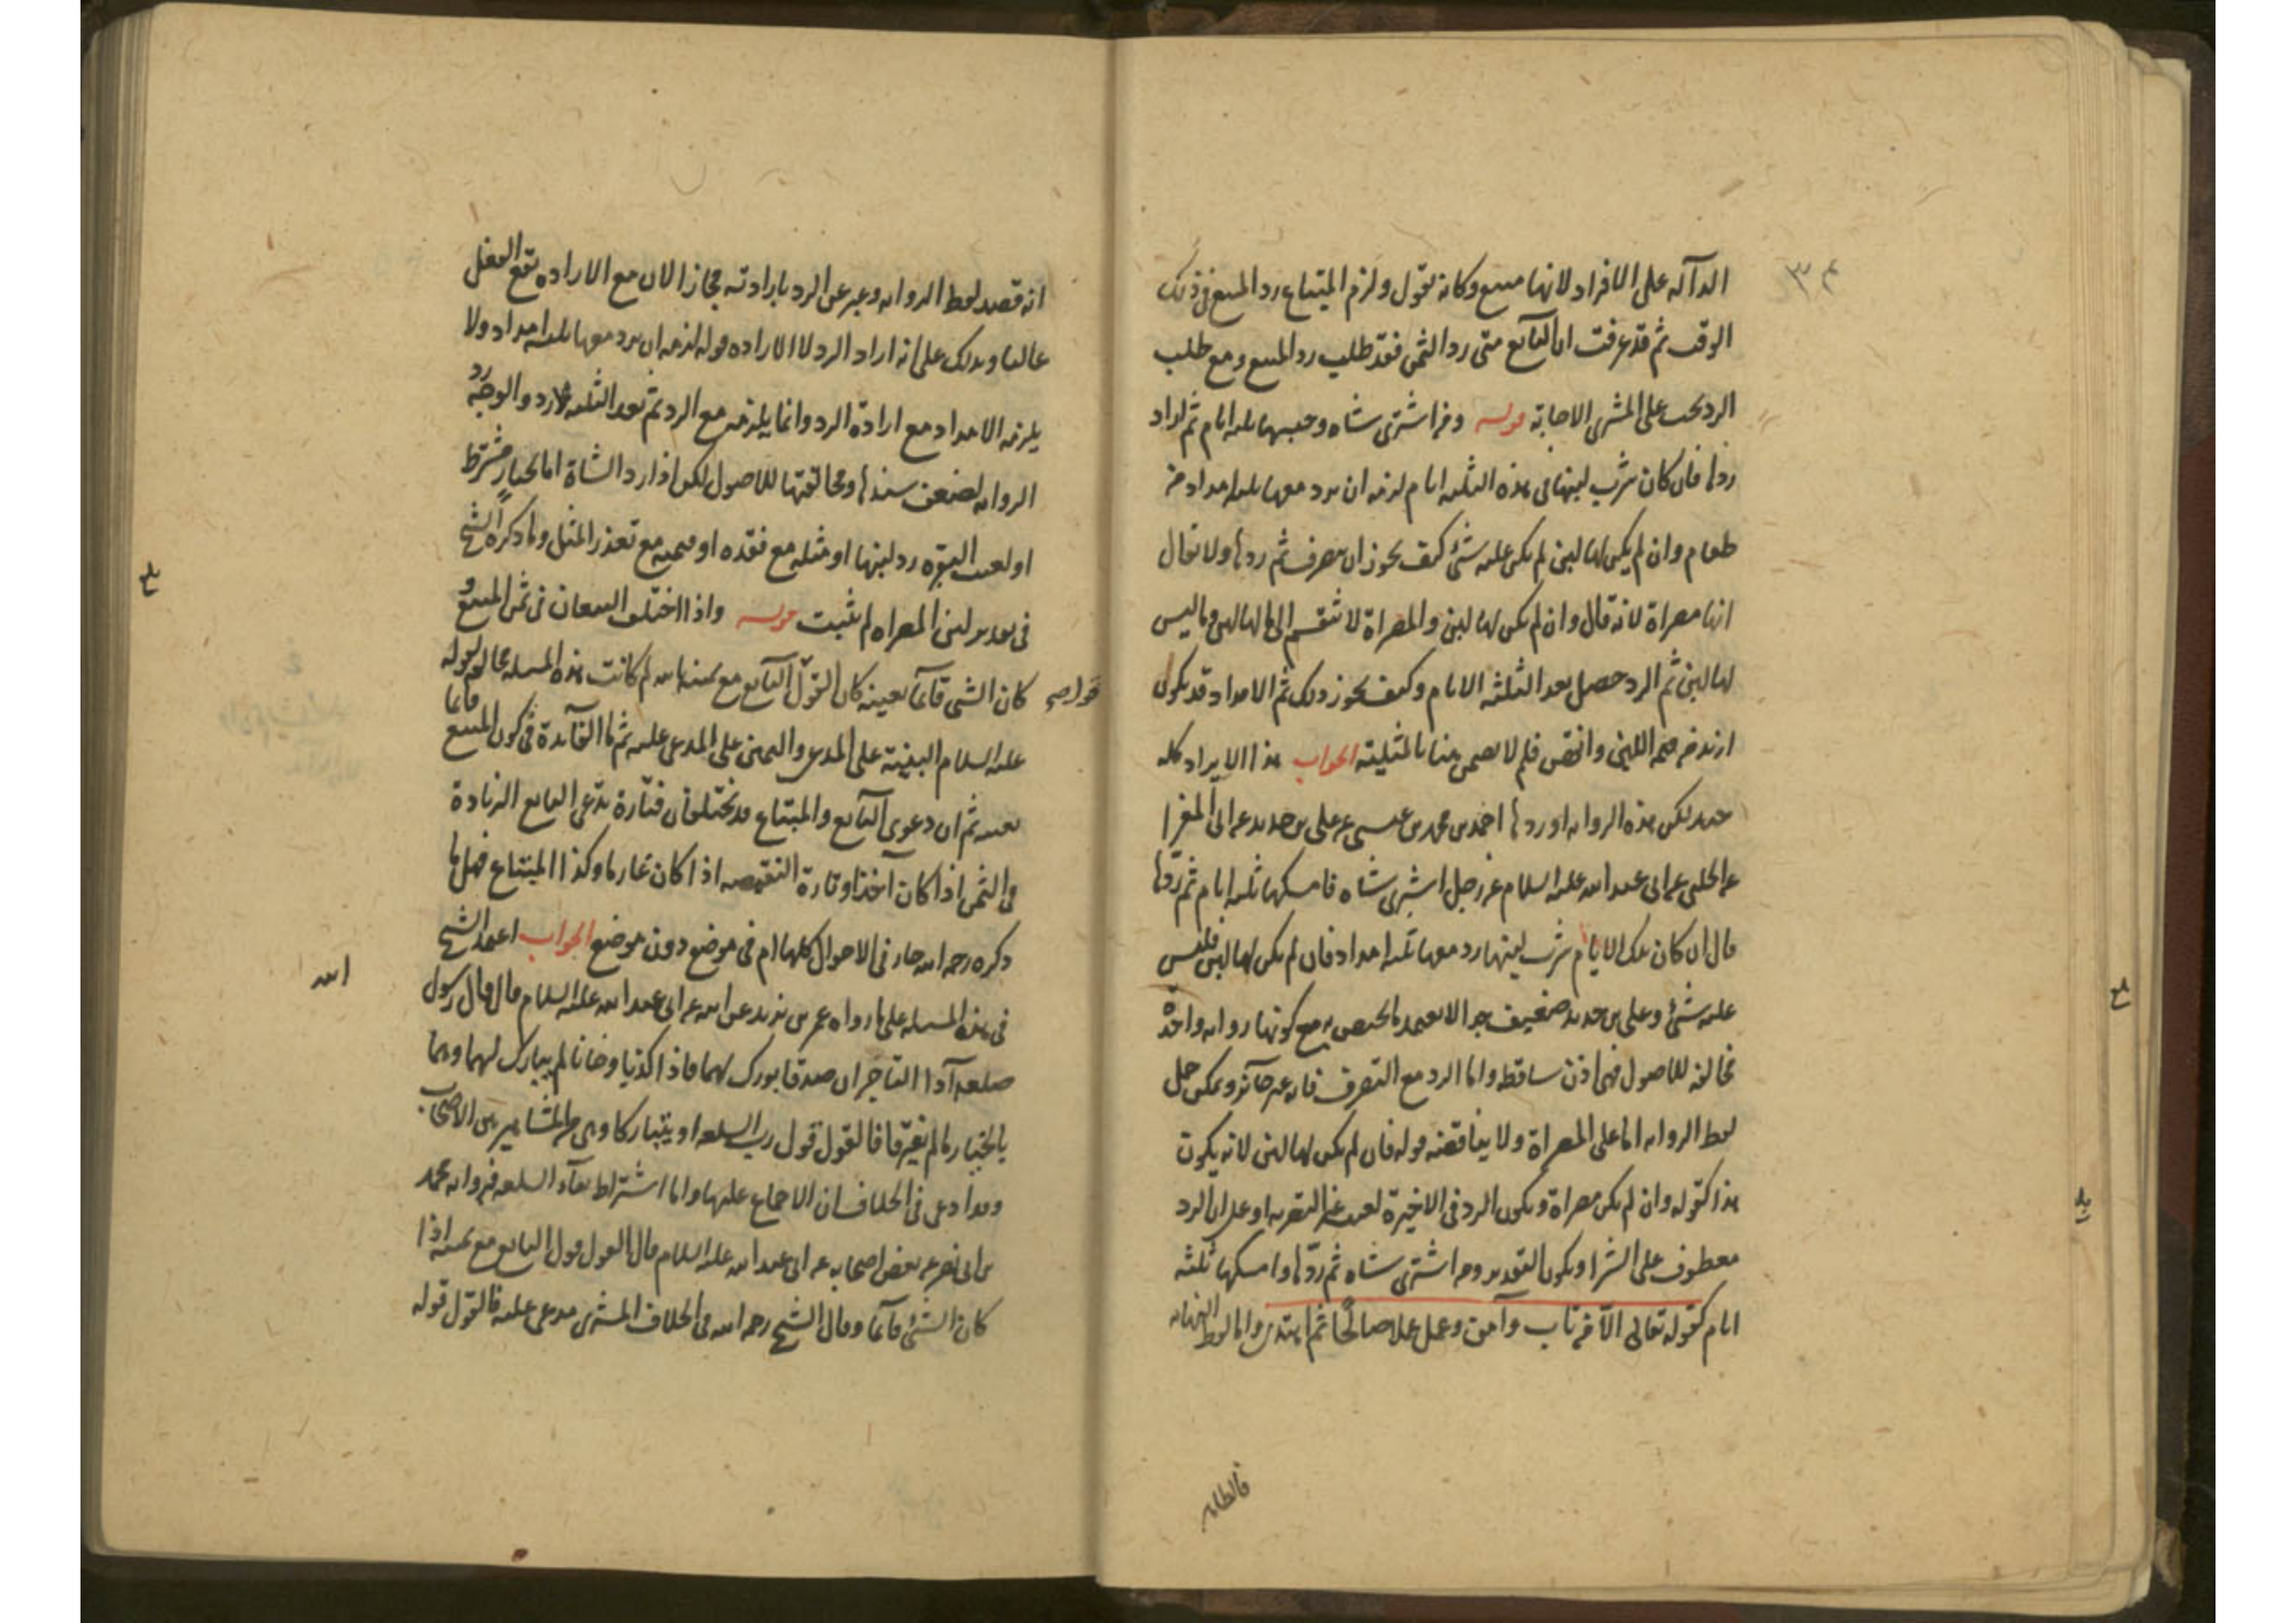 الدالة على الافراد لانها مبيع وكانه يقول ولزم المبتاع رد المبيع في ذلك
الوقت ثم قد عرفت ان البائع متى رد الثمن فقد طلب رد المبيع ومع طلب
الرد يجب على المشتري الاجابة قوله ومن اشترى شاه وحبسها ثلثه ايام ثم اراد
ردها فان كان شرب لبنها في هذه الثلثه ايام لزمه ان يرد معها ثلثه امداد من
طعام وان لم يكن لها لبن لم يكن عليه شئ كيف يجوز ان يتصرف ثم ردها ولا يقال
انها مصراة لانه قال وان لم يكن لها لبن والمصراة لا تنقسم الى ما لها لبن وما ليس
لها لبن ثم الرد حصل بعد الثلثه الايام وكيف يجوز ذلك ثم الامداد قد يكون
ازيد من قيمة اللبن وانقص فلم لا يضمن هنا بالمثلية الجواب هذا الايراد كله
جيد لكن هذه الروايه اوردها احمد بن محمد بن عيسى عن علي بن حديد عن ابي المغرا
عن الحلبي عن ابي عبد الله عليه السلام في رجل اشترى شاه فامسكها ثلثه ايام ثم ردها
قال ان كان تلك الايام شرب لبنها رد معها ثلثه امداد فان لم يكن لها لبن فليس
عليه شئ وعلي بن حديد ضعيف جدا لا يعتمد ما يختص به مع كونها روايه واحدة
مخالفه للاصول فهي اذن ساقطه واما الرد مع التصرف فانه غير جائز ويمكن حمل
لفظ الروايه اما على المصراة ولا يناقضه قوله فان لم يكن لها لبن لانه يكون
هذا كقوله وان لم يكن مصراة ويكون الرد في الاخيرة لعيب غير التصريه او على ان الرد
معطوف على الشرا ويكون التقدير ومن اشترى شاه ثم ردها وامسكها ثلثه
ايام كقوله تعالى الا من تاب وآمن وعمل عملا صالحا ثم اهتدى واما لفظ النهايه
فالظاهر
انه قصد لفظ الروايه وعبر عن الرد بارادته مجازا لان مع الاراده يقع الفعل
غالبا ويدلك على انه اراد الرد لا الاراده قوله لزمه ان يرد معها ثلثه امداد ولا
يلزمه الامداد مع ارادة الرد وانما يلزمه مع الرد ثم بعد الثلثه لا رد والوجه رد
الروايه لضعف سندها ومخالفتها للاصول لكن اذا رد الشاة اما لخيار مشترط
او لعيب التصريه رد لبنها او مثله مع فقده او قيمته مع تعذر المثل وما ذكره الشيخ
في تقدير لبن المصراه لم يثبت قوله واذا اختلف البيعان في ثمن المبيع و
كان الشئ قائما بعينه كان القول قول البائع مع يمينه بالله لم كانت هذه المسله مخالفه لقوله
عليه السلام البينة على المدعي واليمين على المدعى عليه ثم ما الفائدة في كون المبيع قائما
بعينه ثم ان دعوى البائع والمبتاع قد تختلفان فتارة يدعي البايع الزيادة
في الثمن اذا كان آخذا وتارة النقيصه اذا كان غارما وكذا المبتاع فهل ما
ذكره رحمه الله جار في الاحوال كلها ام في موضع دون موضع الجواب اعتمد الشيخ
في هذه المسله على ما رواه عمر بن يزيد عن ابيه عن ابي عبد الله عليه السلام قال قال رسول
الله
صلعم اذا التاجران صدقا بورك لهما فاذا كذبا وخانا لم يبارك لهما وهما
بالخيار ما لم يفترقا فان اختلفا فالقول قول رب السلعه او يتتاركا وهي من المشاهير بين الاصحاب
وقد ادعى في الخلاف ان الاجماع عليها واما اشتراط بقاء السلعه فروايه محمد
بن ابي نصر عن بعض اصحابه عن ابي عبد الله عليه السلام قال القول قول البايع مع يمينه اذا
كان الشئ قائما وقال الشيخ رحمه الله في الخلاف المشتري مدعى عليه فالقول قوله